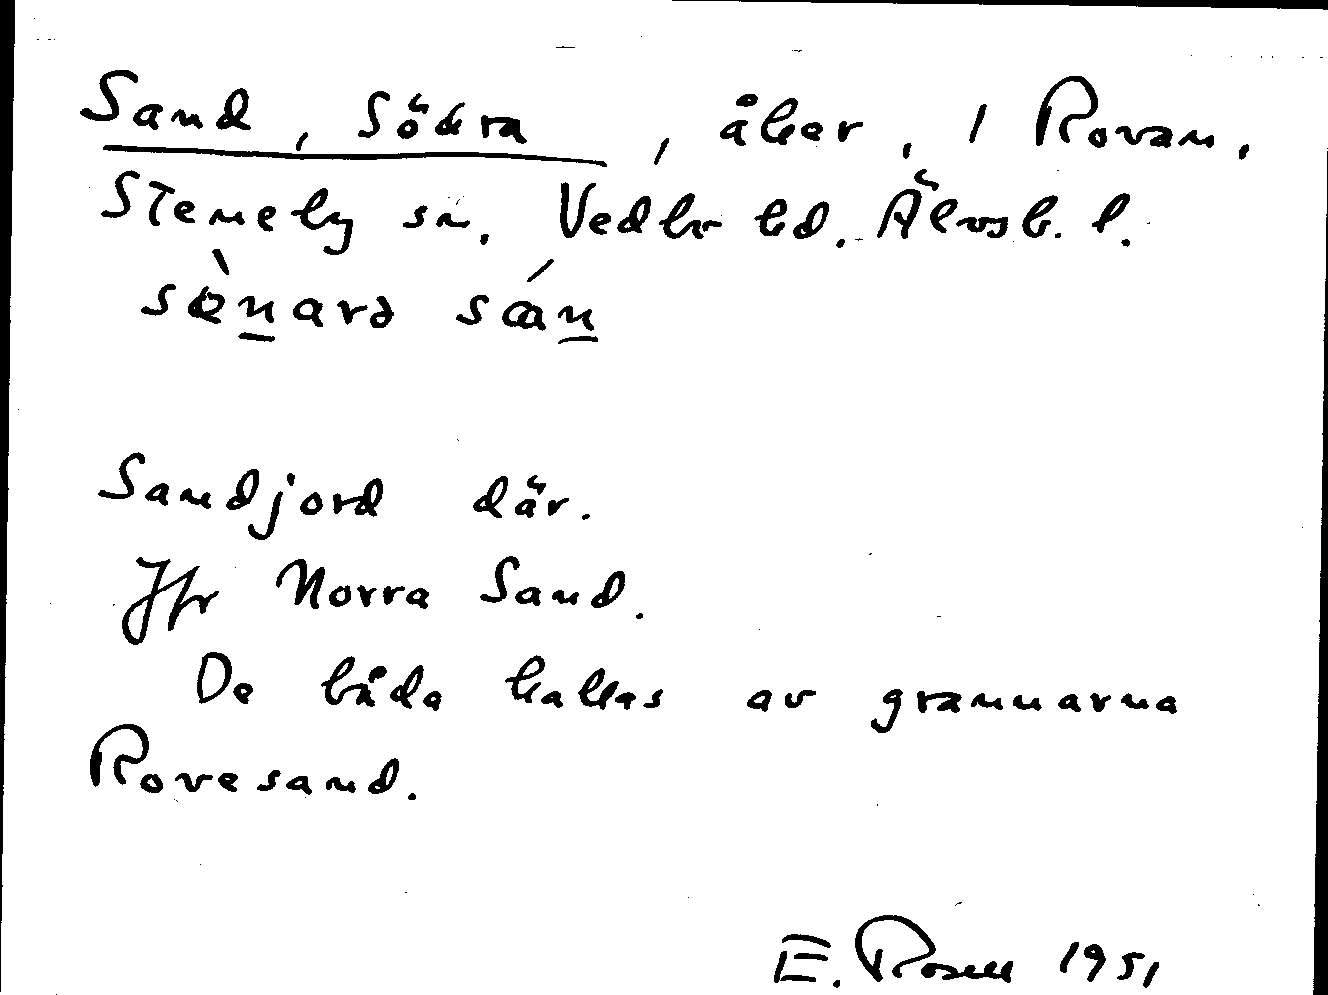 Sand, Södra, åker, 1 Rovan,
Steneby sn, Vedbo hd. Älvsb. l.
sæ̀n̲arə sán̲
Sandjord där.
Jfr Norra Sand.
De båda kallas av grannarna
Rovesand.
E. Rosell 1951